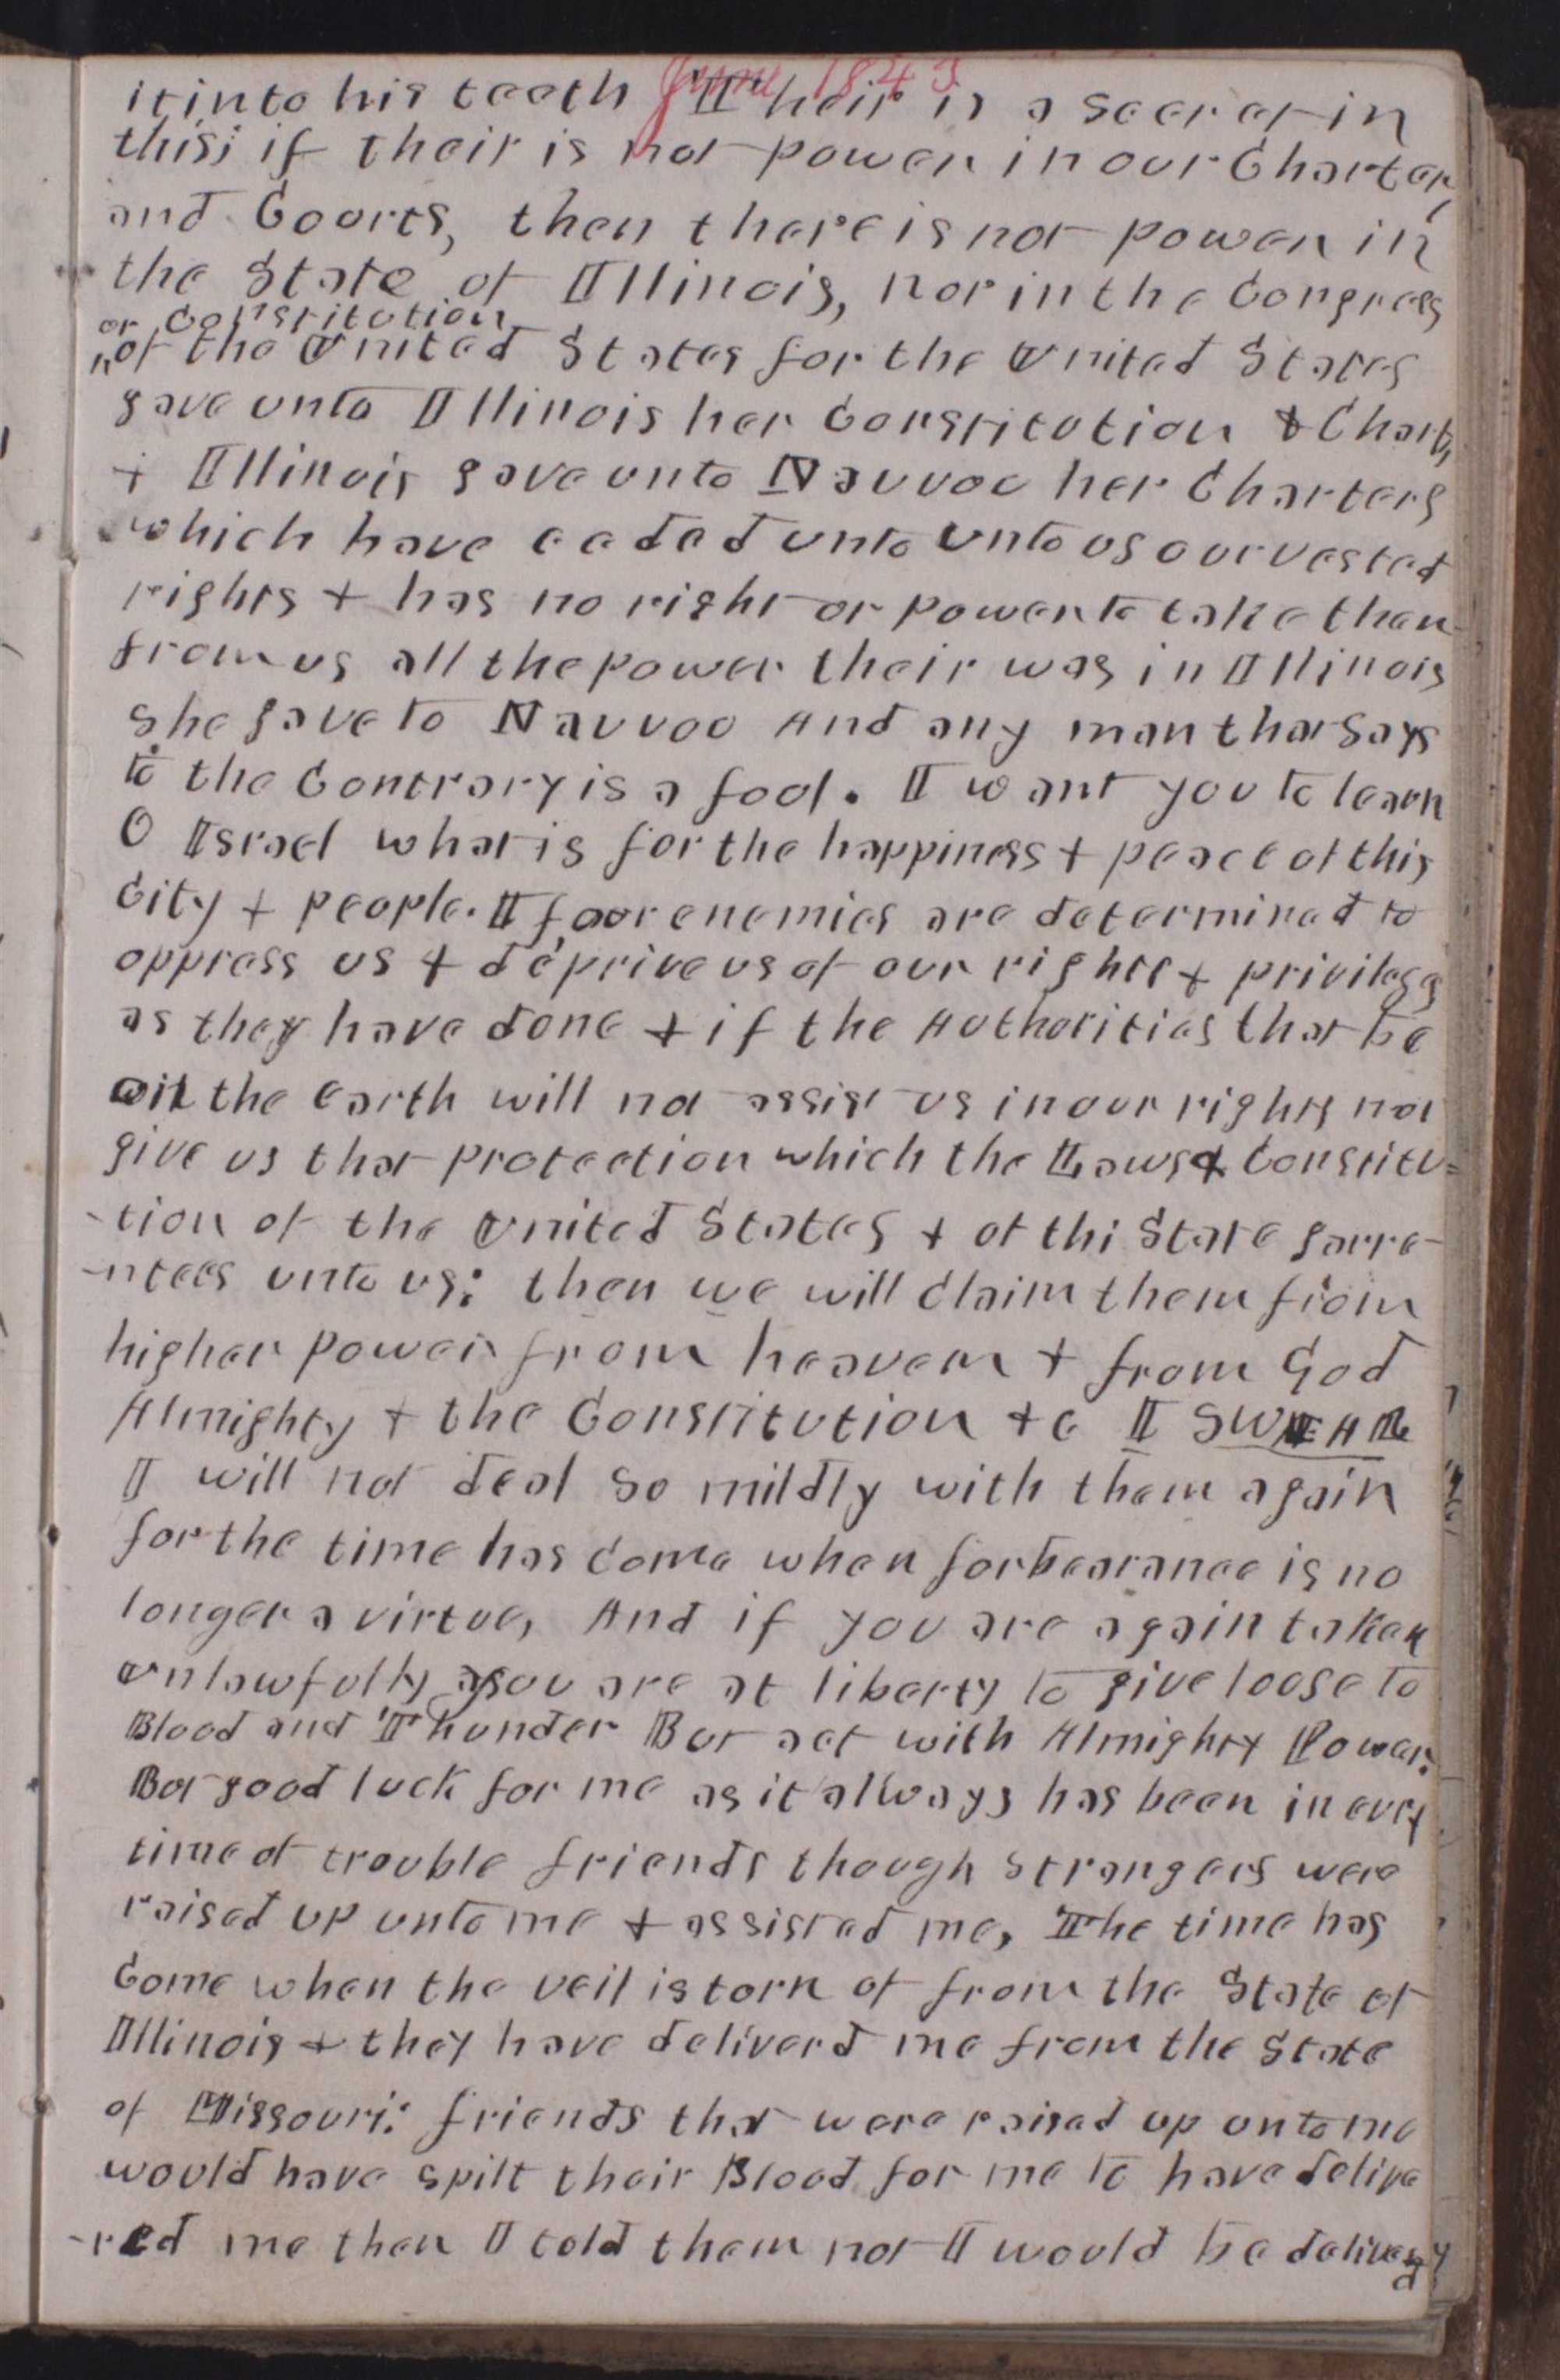 June 1843
it into his teeth Their is a secret in
this; if their is not power in our Charter,
and Courts, then there is not power in
the State of Illinois, nor in the Congress
or Constitution
of the United States for the United States
gave unto Illinois her Constitution & Chart,
+ Illinois gave unto Nauvoo her Charters
which have ceded unto unto us our vested
rights + has no right or power to take them
from us all the power their was in Illinois
she gave to Nauvoo And any man that says
to the Contrary is a fool. I want you to learn
O Israel what is for the happiness + peace of this
City + people. If our enemies are determined to
oppress us & deprive us of our rights + privileges
as they have done + if the Authorities that be
on the earth will not assist us in our rights not
give us that protection which the Laws & Constitu=
-tion of the United States + of thi State garre-
-ntees unto us: then we will claim them from
higher power from heavem + from God
Almighty + the Constitution +c I SWEAR
I will not deal so mildly with them again
for the time has come when forbearance is no
longer a virtue, And if you are again taken
unlawfully you are at liberty to give loose to
Blood and Thunder But act with Almighty Power.
But good luck for me as it allways has been in evry
time of trouble friends though strangers were
raised up unto me + assisted me, The time has
Come when the veil is torn of from the State of
Illinois + they have deliverd me from the State
of Missouri: friends that were raised up unto me
would have spilt their Blood for me to have delive
-red me then I told them not I would be deliverd